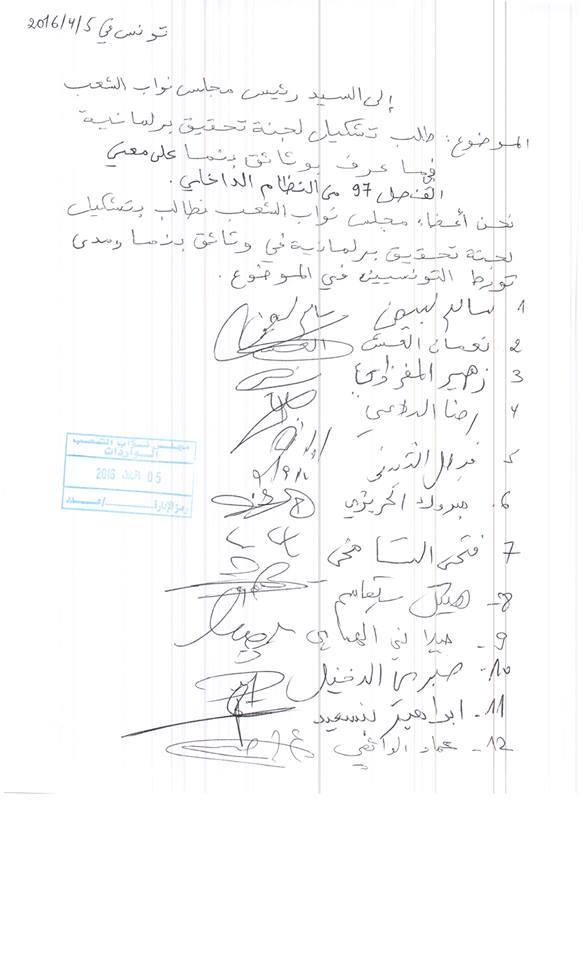 تونس في 2016/4/5
إلى السيد رئيس مجلس نواب الشعب
الموضوع: طلب تشكيل لجنة تحقيق برلمانية
فيما عرف بوثائق بنما على معنى
الفصل 97 من النظام الداخلي.
نحن أعضاء مجلس نواب الشعب نطالب بتشكيل
لجنة تحقيق برلمانية في وثائق بنما ومدى
تورط التونسيين في الموضوع.
1 سالم لبيض
2 نعمان العش
3 زهير المغزاوي
4 رضا الدلاعي
5 فيصل التبيني
6. مبروك الحريزي
7 فتحي الشامخي
8- هيكل بلقاسم
9- جيلاني الهمامي
10- صبري الدخيل
11- ابراهيم بنسعيد
12- عماد الدائمي
مجلس نواب الشعب
الواردات
05 2016
رمز الإدارة / عدد